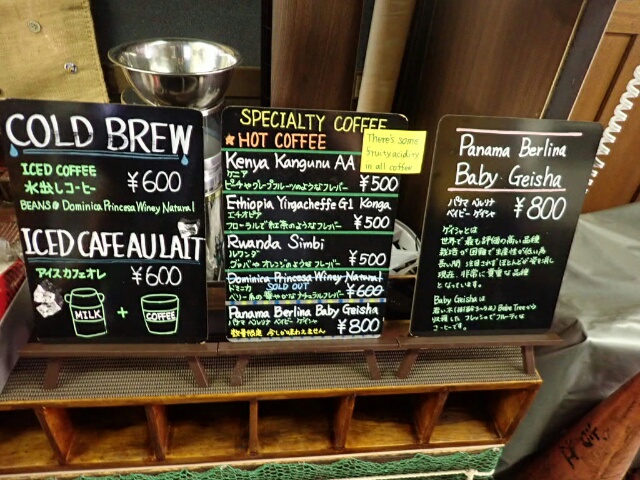 COLD BREW
ICED COFFEE
水出しコーヒー
¥600
BEANS@ Dominica Princesa Winey Natural
ICED CAFE AU LAIT
アイスカフェオレ
¥600
MILK + COFFEE
SPECIALTY COFFEE
★HOT COFFEE
There's some
fruity acidity
in all coffee
Kenya Kangunu AA
ケニア
¥500
ピーチやグレープフルーツのようなフレーバー
Ethiopia Yirgacheffe G1 Konga
エチオピア
¥500
フローラルで紅茶のようなフレーバー
Rwanda Simbi
ルワンダ
¥500
オレンジのようなフレーバー
Dominica Princesa Winey Natural
SOLD OUT
ドミニカ
¥600
ベリー系の華やかなナチュラルフレーバー
Panama Berlina Baby Geisha
パナマ ベルリナ ベイビー ゲイシャ
¥800
数量限定 今しか味わえません
Panama Berlina
Baby Geisha
パナマ ベルリナ
ベイビー ゲイシャ
¥800
ゲイシャとは
世界で最も評価の高い品種
栽培が困難で生産性が低い為
長い間注目されずほとんどが姿を消し
現在、非常に貴重な品種
となっています。
Baby Geishaは
Baby Treeから
収穫した フレッシュでフルーティな
コーヒーです。